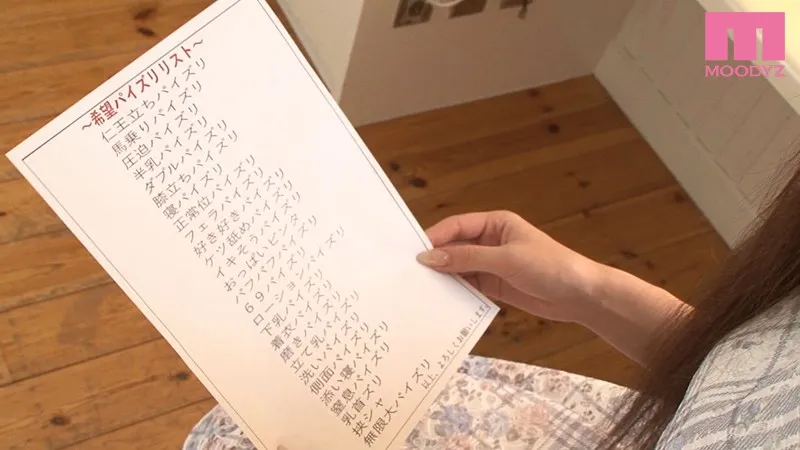 MOODYZ
~希望パイズリリスト~
仁王立ちパイズリ
馬乗りパイズリ
圧迫パイズリ
半乳パイズリ
ダブルパイズリ
膝立ちパイズリ
寝パイズリ
正常位パイズリ
フェラパイズリ
好き好きパイズリ
ケツ舐めパイズリ
イキそうパイズリ
おっぱいビンタ
パフパフパイズリ
69パイズリ
ローションパイズリ
下乳パイズリ
着衣パイズリ
磨きパイズリ
立て乳パイズリ
洗いパイズリ
側面パイズリ
添い寝パイズリ
窒息パイズリ
乳首ズリ
挟シャ
無限大パイズリ
以上、よろしくお願いします